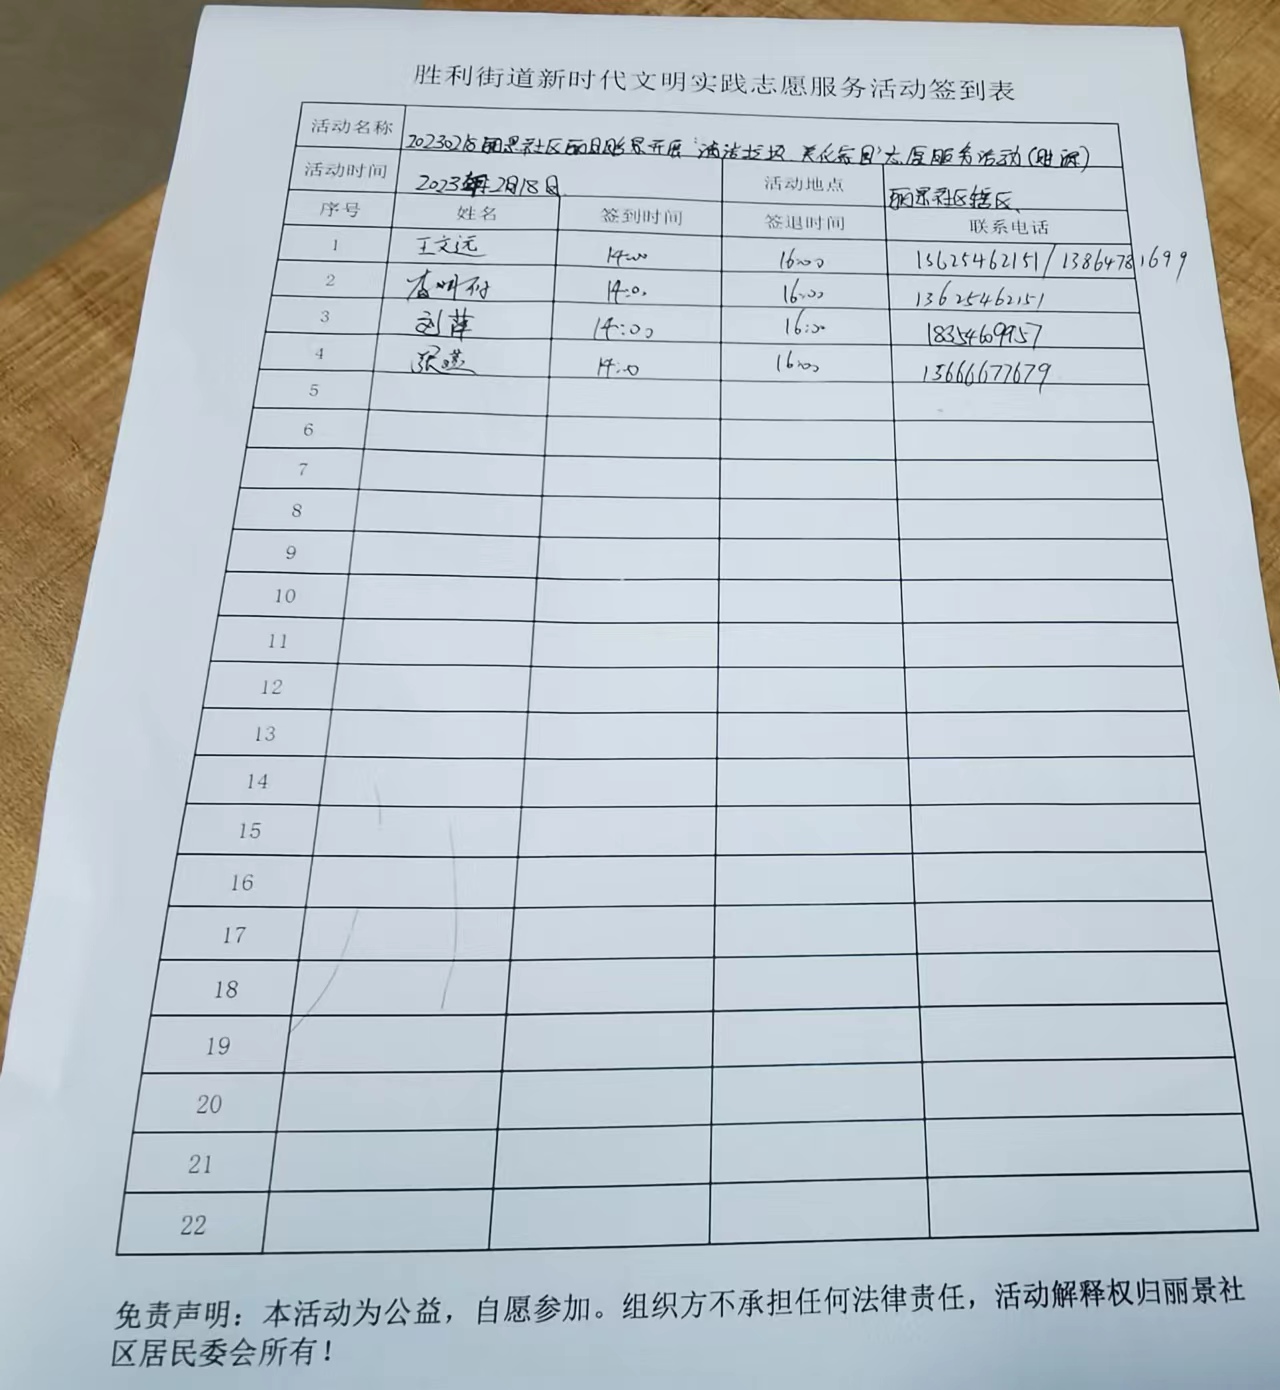 胜利街道新时代文明实践志愿服务活动签到表
活动名称 20230218丽景社区 开展"清洁垃圾、美化家园"志愿服务活动(胜源)
活动时间 2023年2月18日 活动地点 丽景社区辖区
序号 姓名 签到时间 签退时间 联系电话
1 王文远 14:00 16:00 15625462151/13864781699
2 14:00 16:00 13625462151
3 刘萍 14:00 16:00 18354609957
4 张燕 14:00 16:00 15666677679
5
6
7
8
9
10
11
12
13
14
15
16
17
18
19
20
21
22
免责声明：本活动为公益，自愿参加。组织方不承担任何法律责任，活动解释权归丽景社
区居民委会所有！